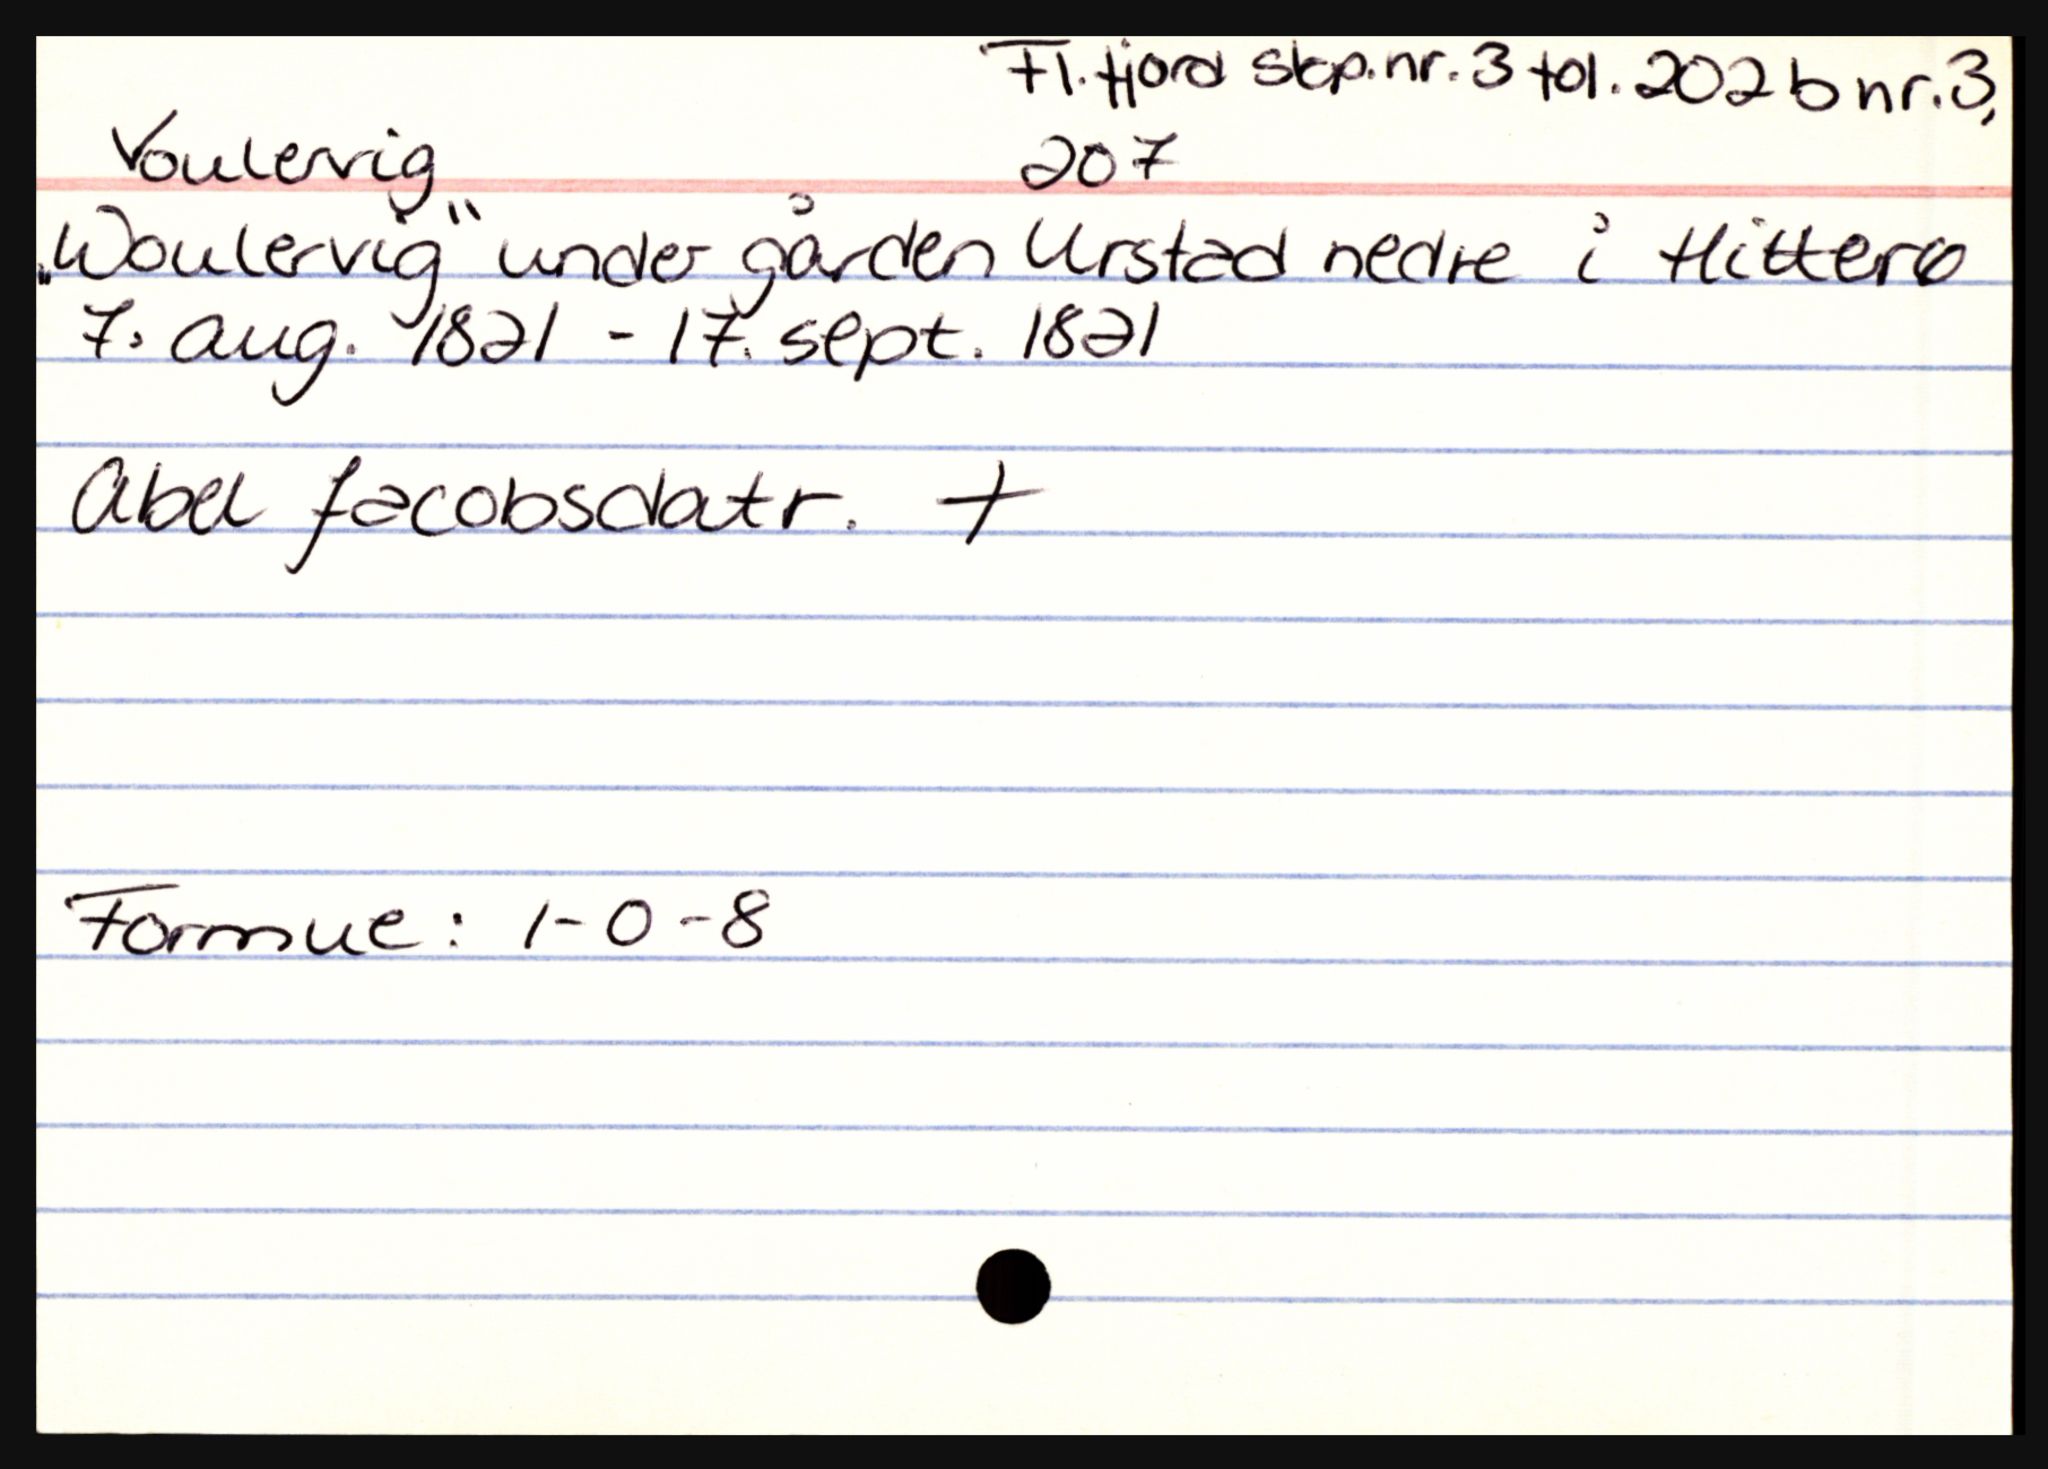 Fl.fjord skp.nr.3 fol.202b nr.3,
Voulervig 207
„Woulervig" under gården Urstad nedre i Hitterø
7. aug. 1821 - 17. sept. 1821
Abel Jacobsdatr. +
Formue: 1-0-8